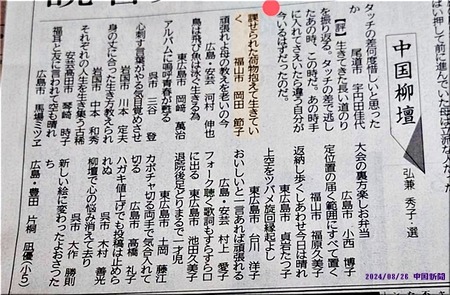 中国柳壇
弘兼 秀子・選
タッチの差何度惜しいと思った
尾道市
【評】生きてきた長い道のり
を振り返る。タッチの差で逃し
たあの時、この時。あの時手
に入れてさえいたら違う自分が
今いるはずだったのだ。
課せられた荷物抱えて生きてい
く 福山市 岡田 節子
頑張れと母の教えを老いの今
広島・安芸 河村 伸也
鳥は飛び魚は泳ぐ生きる為
東広島市 岡崎 萬治
アルバムに珈琲青春が甦る
呉市 三谷 登
心刺す言葉がやる気目覚めさせ
岩国市 川本 定夫
身の丈に合った生き方教えられ
岩国市 中本 和秀
それぞれの人生を生き集う古稀
安芸高田市 琴崎 時子
福耳と左に言われて空も晴れ
広島市 馬場ミツヱ
大会の裏方楽しお弁当
広島市 小西 博子
定位置の届く範囲にすべて置く
福山市 福原久美子
返納し歩くしあわせ今日は晴れ
東広島市 貞岩たつ子
上空をツバメ旋回縁起よし
東広島市 合川 洋子
おいしいと一言あれば頑張れる
広島・安芸 村上 愛子
フォーク聴く歌詞もすらすら口
に出る 東広島市 池田久美子
退院後足どりまるで一才児
東広島市 土岡 藤江
カボチャ切る両手で気合入れて
切る 広島市 高橋 礼子
ハガキ値上げでも投稿は止めら
れぬ 呉市 木村 善光
柳壇で心の悩み消えて去り
呉市 大作 勝則
新しい絵に変わったよおさつた
ち 広島・豊田 片桐 凪優(小5)
2024/08/26 中国新聞